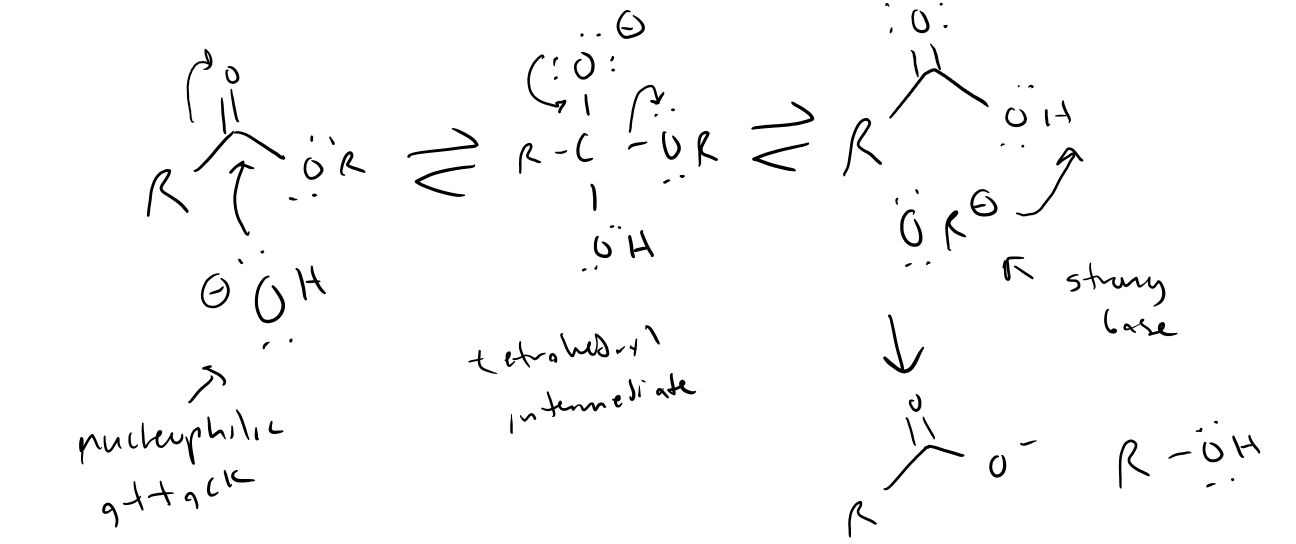 O
R
O R
⊖ OH
nucleophilic
attack
⊖
O
R - C - O R
OH
tetrahedryl
intermediate
O
R
O H
O R ⊖
strong
base
O
R
O⁻
R - O H